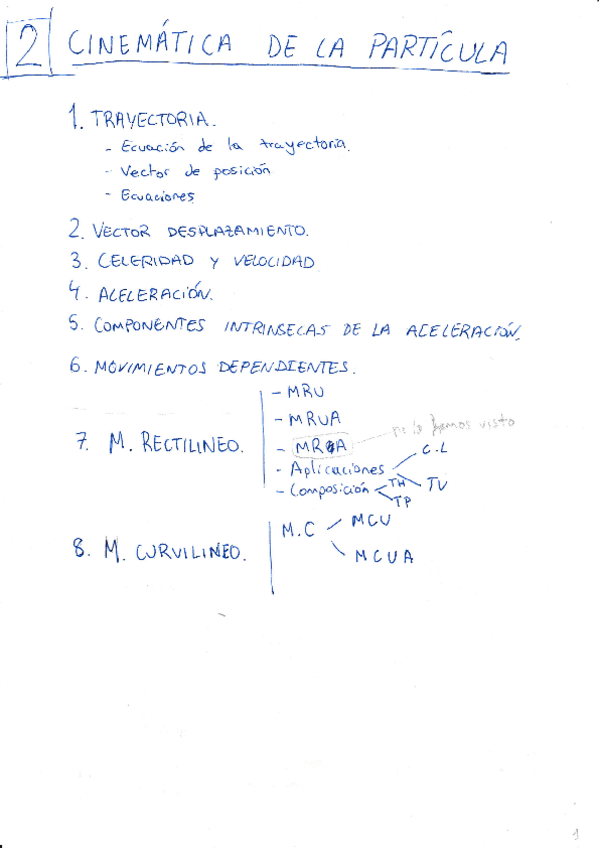 2 CINEMÁTICA DE LA PARTÍCULA
1. TRAYECTORIA.
- Ecuación de la trayectoria.
- Vector de posición
- Ecuaciones
2. VECTOR DESPLAZAMIENTO.
3. CELERIDAD Y VELOCIDAD
4. ACELERACIÓN.
5. COMPONENTES INTRINSECAS DE LA ACELERACIÓN.
6. MOVIMIENTOS DEPENDIENTES.
7. M. RECTILINEO.
- MRU
- MRUA
- MRA no lo hemos visto
- Aplicaciones C.L
TV
- Composición TH
TP
8. M. CURVILINEO.
M.C MCU
MCUA
1